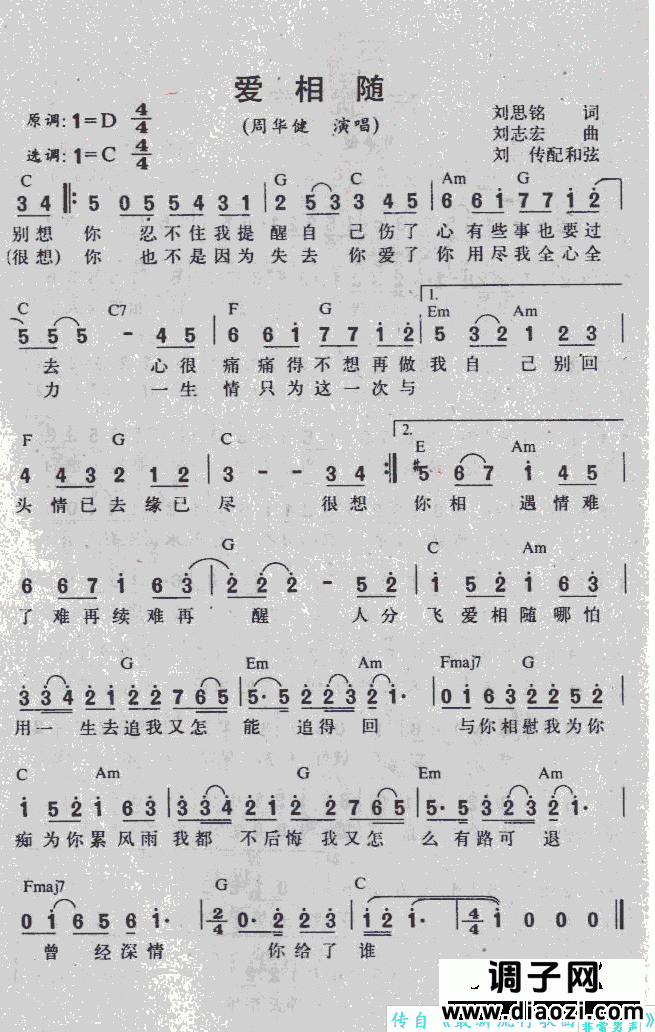 爱 相 随
(周华健 演唱)
原调: 1=D 4/4
选调: 1=C 4/4
刘思铭 词
刘志宏 曲
刘 传配和弦
C G C Am G
3 4 ‖: 5 0 5 5 4 3 1 | 2 5 3 3 4 5 | 6 6 i 7 7 i 2
别想 你 忍不住我提 醒自己伤了 心有些事也要过
(很想) 你 也不是因为 失去 你爱了 你用尽我全心全
C C7 F G 1. Em Am
5 5 5 - 4 5 | 6 6 i 7 7 i 2 | 5 3 2 1 2 3
去 心很 痛痛得不想再做 我自 己别回
力 一生 情只为这一次与
F G C 2. E Am
4 4 3 2 1 2 | 3 - - 3 4 :‖ #5 6 7 i 4 5
头情已去缘已 尽 很想 你相 遇情难
G C Am
6 6 7 i 6 3 | 2 2 2 - 5 2 | i 5 2 i 6 3
了难再续难再 醒 人分 飞爱相随哪怕
G Em Am Fmaj7 G
3 3 4 2 i 2 2 7 6 5 | 5· 5 2 2 3 2 i· | 0 i 6 3 2 2 5 2
用一 生去追我又怎 能 追得 回 与你相慰我为你
C Am G Em Am
i 5 2 i 6 3 | 3 3 4 2 i 2 2 7 6 5 | 5· 5 3 2 3 2 i·
痴为你累风雨 我都 不后悔我又怎 么有路可 退
Fmaj7 G C
0 i 6 5 6 i· | 2/4 0· 2 2 3 | i 2 i· | 4/4 i 0 0 0 ‖
曾 经深情 你给了 谁
调子网
www.diaozi.com
传自《最新流行歌曲
非常男声》